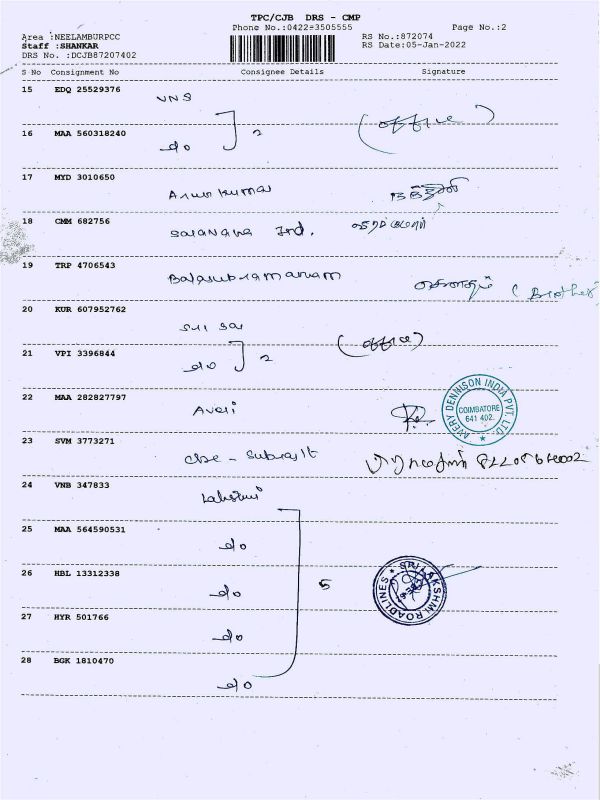 TPC/CJB DRS - CMP
Phone No.:0422-3505555
Page No.:2
Area :NEELAMBURPCC
Staff :SHANKAR
DRS No. :DCJB87207402
RS No.:872074
RS Date:05-Jan-2022
S No Consignment No Consignee Details Signature
15 EDQ 25529376
VNS
(office)
16 MAA 560318240
do 2
17 MYD 3010650
Arun kumar
18 CMM 682756
Saranana Ind.
19 TRP 4706543
Balasubramaniam
(Brother)
20 KUR 607952762
Sri Sai
(office)
21 VPI 3396844
do 2
22 MAA 282827797
Averi
AVERY DENNISON INDIA PVT. LTD.
COIMBATORE
641 402.
23 SVM 3773271
24 VNB 347833
Lakshmi
25 MAA 564590531
do
26 HBL 13312338
do 5
SRI LAKSHMI ROADLINES
27 HYR 501766
do
28 BGK 1810470
do